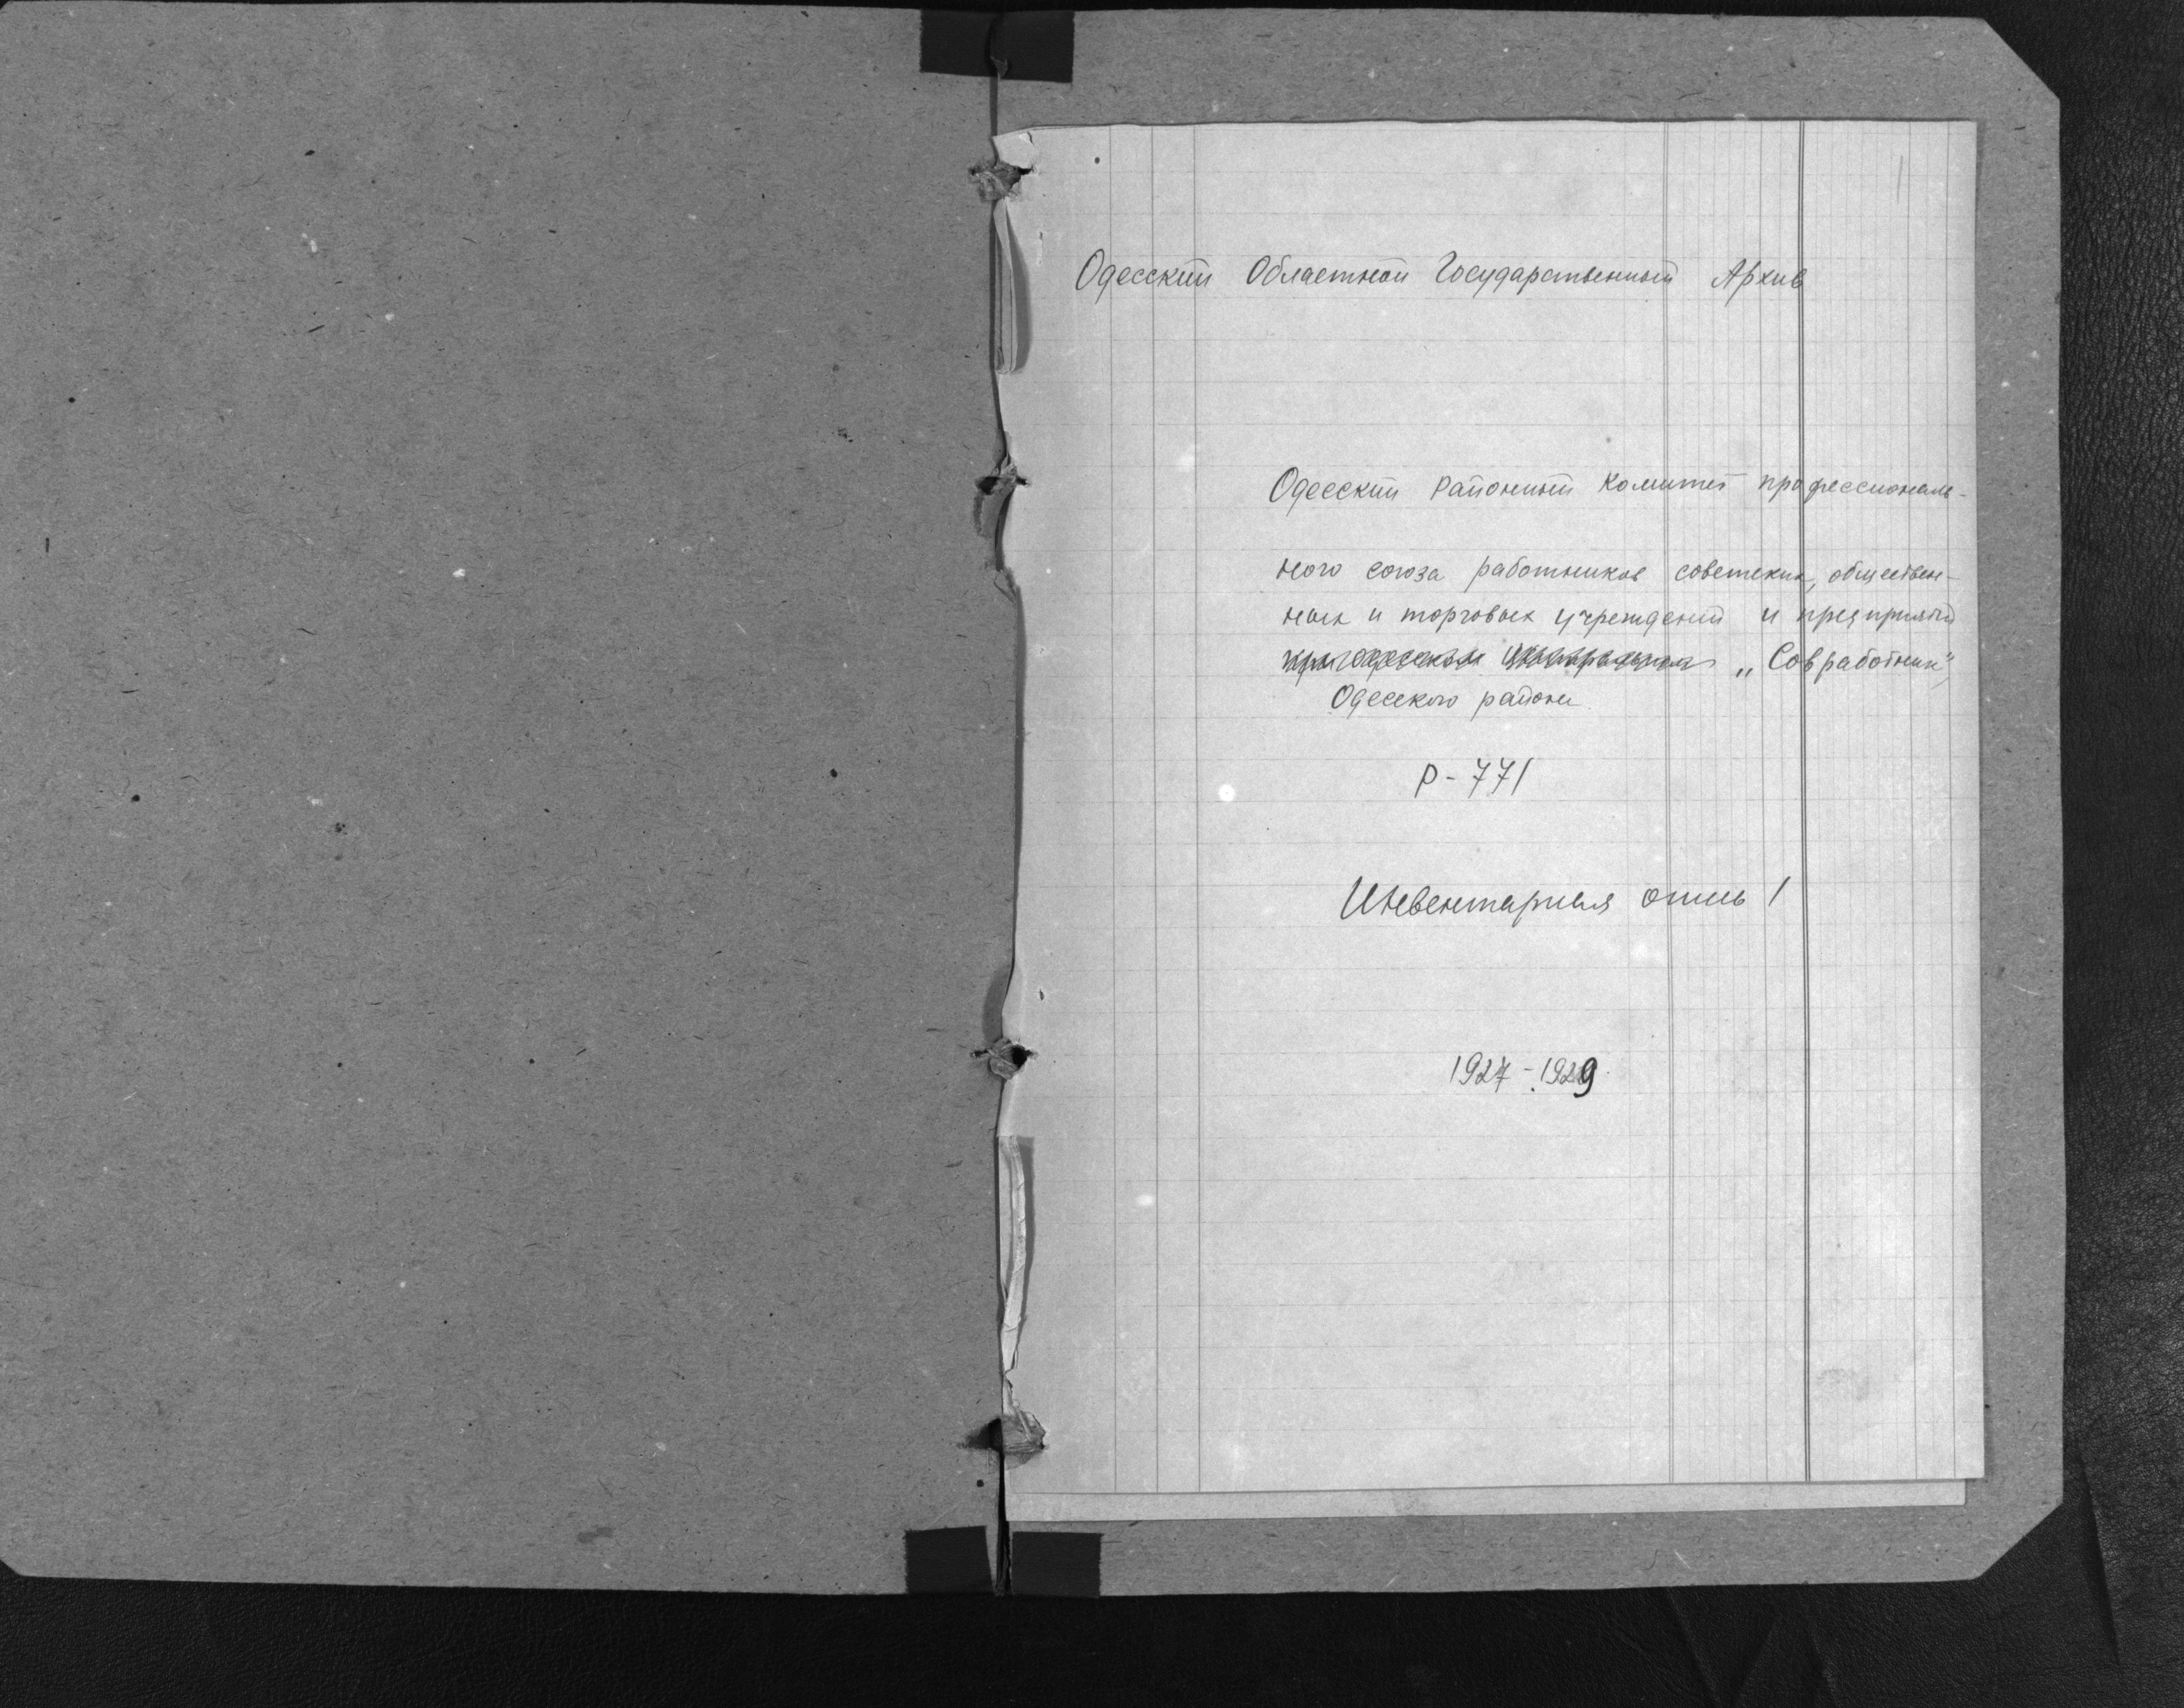 1
Одесский Областной Государственный Архив
Одесский районный комитет профессиональ-
ного союза работников советских, обществен-
ных и торговых учреждений и предприятий
„Совработник"
Одесского района.
Р-771
Инвентарная опись 1
1927-1929